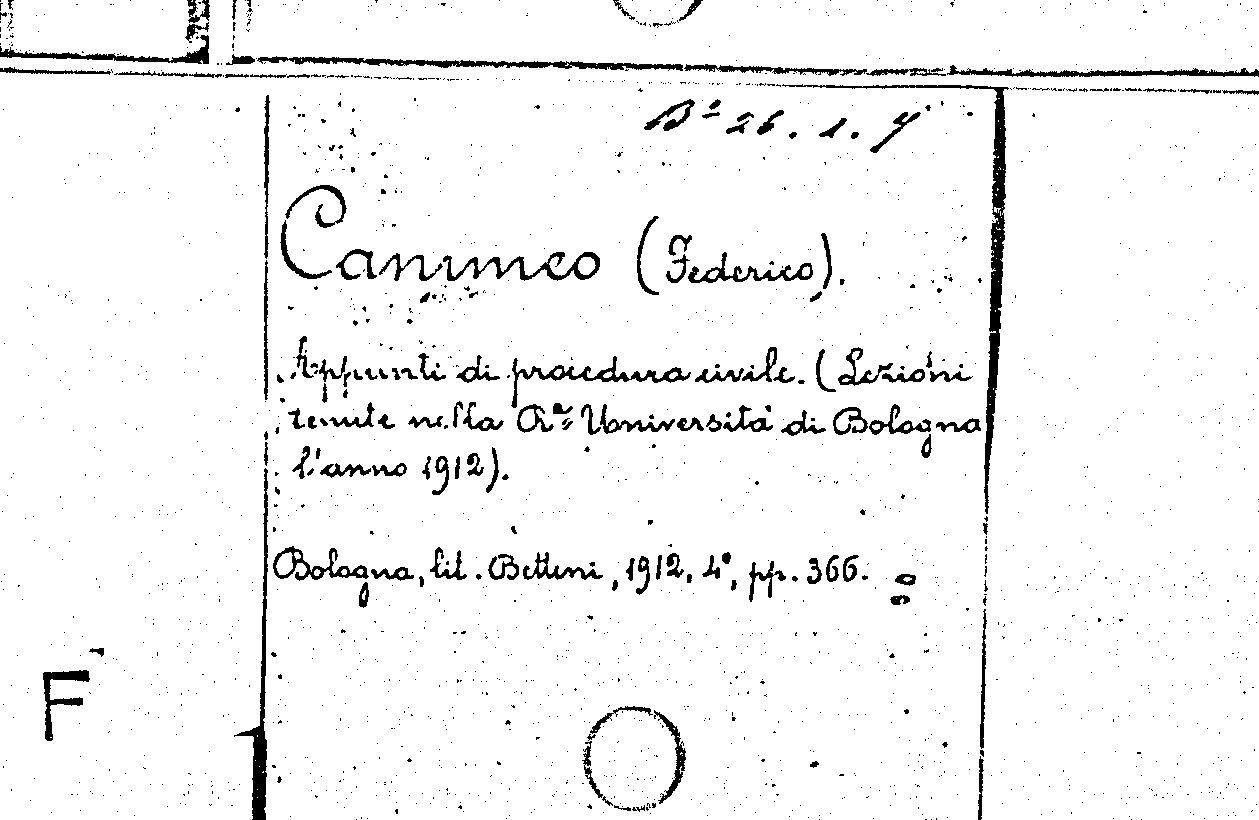 Bª 26. 1. 4
Cammeo (Federico).
Appunti di procedura civile. (Lezioni
tenute nella Rª Università di Bologna
l'anno 1912).
Bologna, lit. Bettini, 1912. 4°, pp. 366.
F